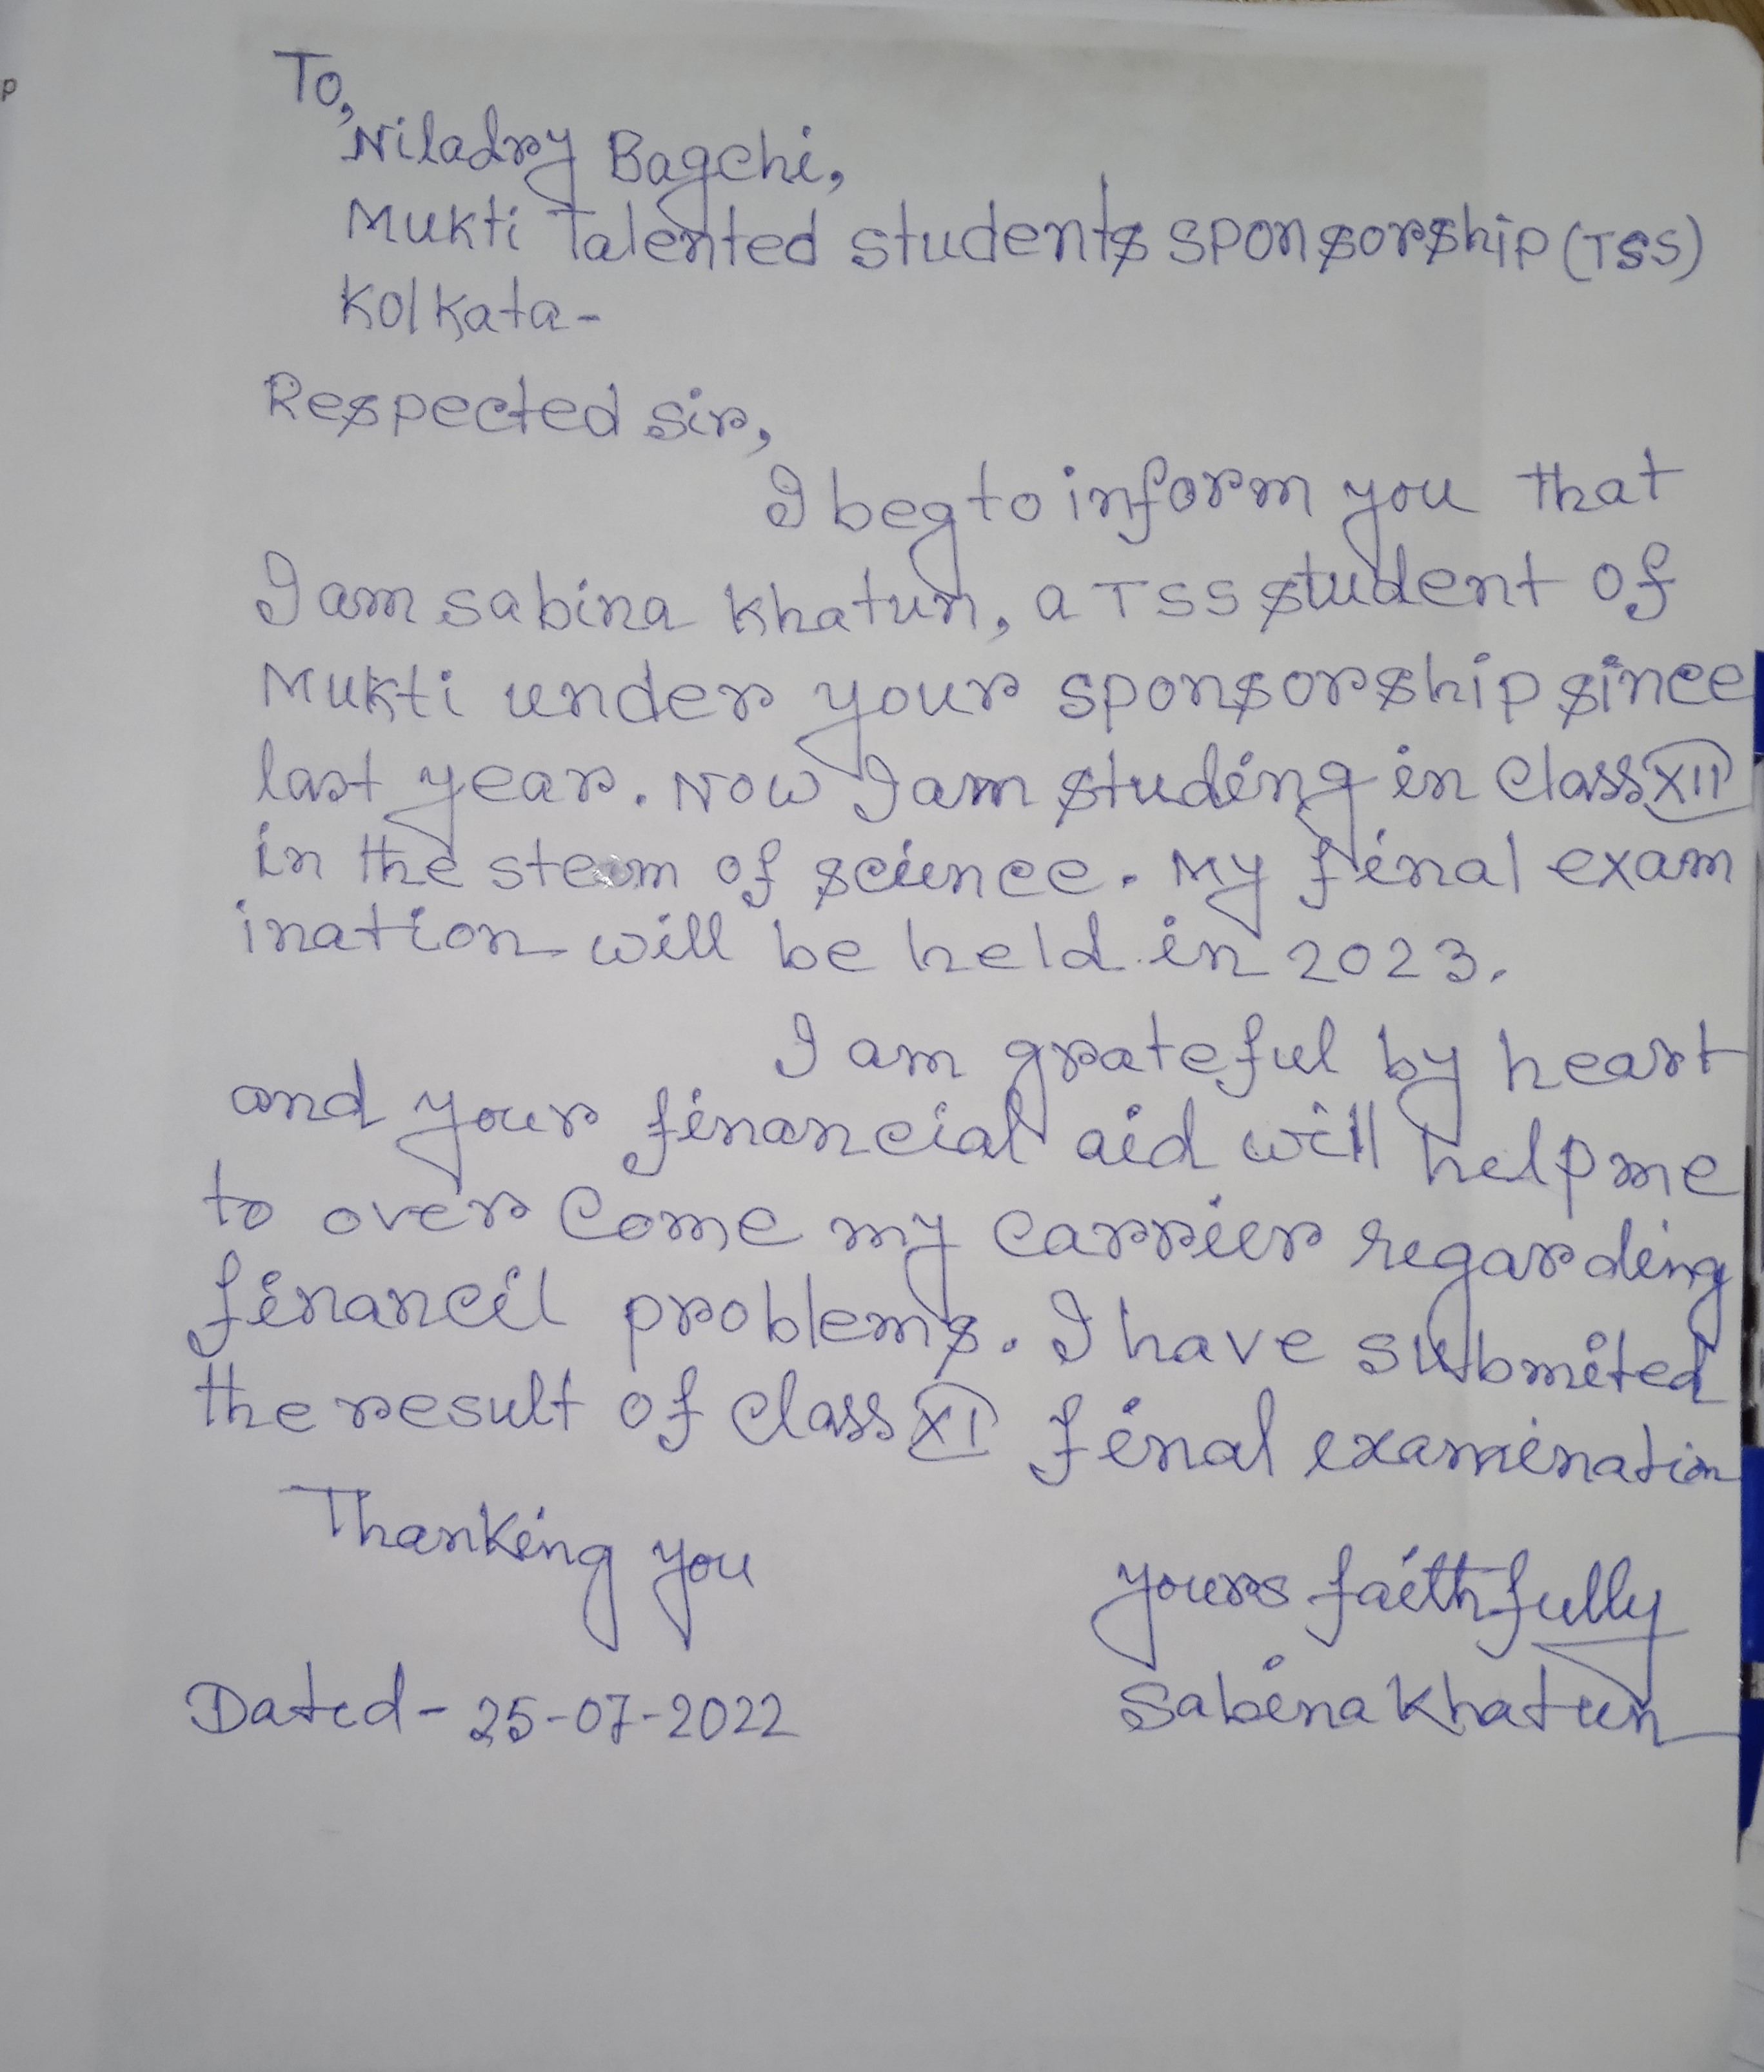 p
To,
Niladry Bagchi,
Mukti Talented students sponsorship (TSS)
Kolkata-
Respected sir,
I beg to inform you that
I am sabina Khatun, a TSS student of
Mukti under your sponsorship since
last year. Now I am studing in class XII
in the steam of science. My final exam
ination will be held in 2023.
I am grateful by heart
and your financial aid will help me
to over come my carrier regarding
financil problems. I have submited
the result of class XI final examination
Thanking you
yours faithfully
Dated- 25-07-2022
Sabina Khatun